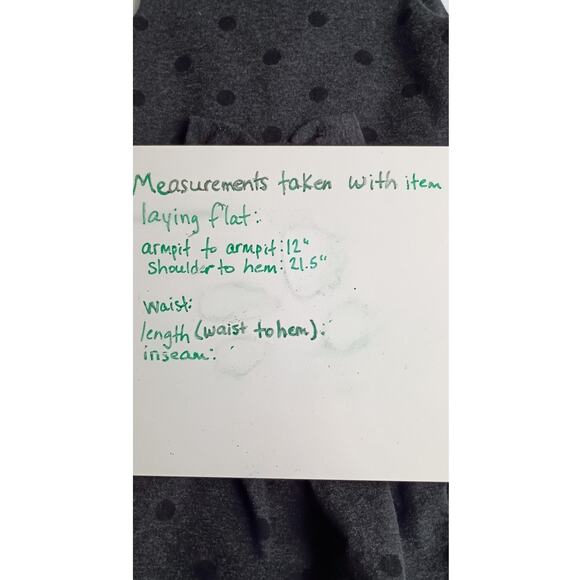 Measurements taken with item
laying flat:
armpit to armpit: 12"
Shoulder to hem: 21.5"
waist:
length (waist to hem):
inseam: